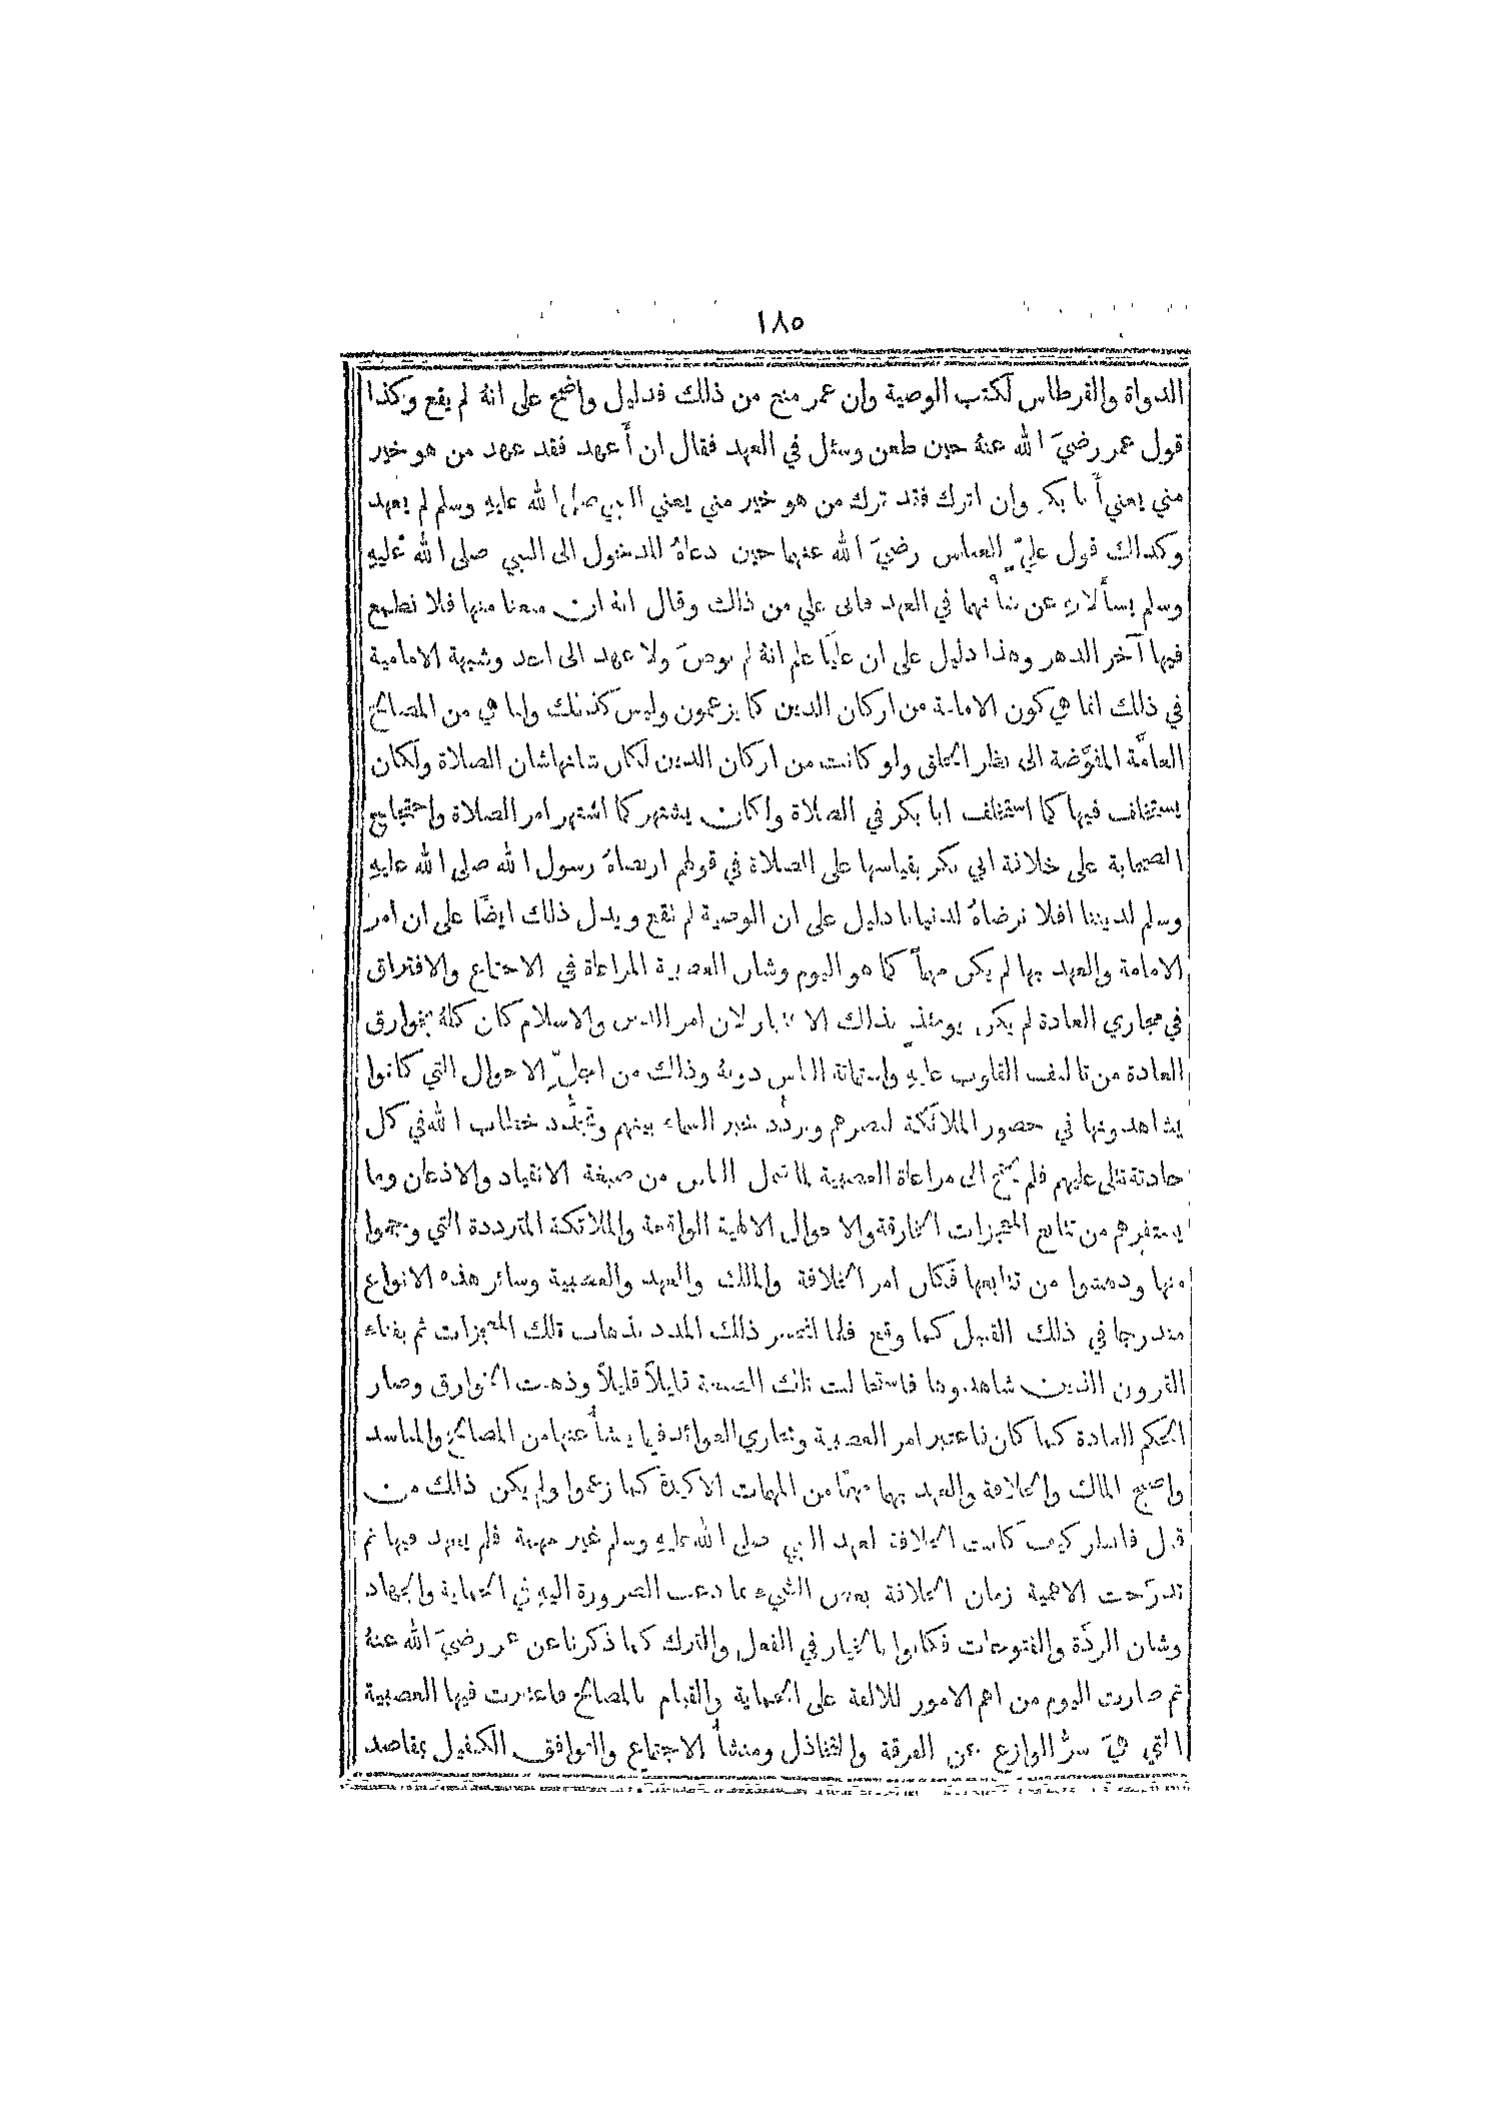 ١٨٥
الدواة والقرطاس لكتب الوصية وان عمر منع من ذلك فدليل واضح على انهُ لم يقع وكذا
قول عمر رضيَ الله عنهُ حين طعن وسئل في العهد فقال ان أَعهد فقد عهد من هو خير
مني يعني أَبا بكر وان اترك فقد ترك من هو خير مني يعني النبي صلى الله عليهِ وسلم لم يعهد
وكذلك قول عليّ للعباس رضيَ الله عنهما حين دعاهُ للدخول الى النبي صلى الله عليهِ
وسلم يسأَلانهِ عن شأنهما في العهد فابى علي من ذلك وقال انهُ ان منعنا منها فلا نطمع
فيها آخر الدهر وهذا دليل على ان عليًا علم انهُ لم يوصَ ولا عهد الى احد وشبهة الامامية
في ذلك انما هي كون الامامة من اركان الدين كما يزعمون وليس كذلك وانما هي من المصالح
العامَّة المفوَّضة الى نظر الخلق ولو كانت من اركان الدين لكان شانها شان الصلاة ولكان
يستخلف فيها كما استخلف ابا بكر في الصلاة ولكان يشتهر كما اشتهر امر الصلاة واحتجاج
الصحابة على خلافة ابي بكر بقياسها على الصلاة في قولهم ارتضاهُ رسول الله صلى الله عليهِ
وسلم لديننا افلا نرضاهُ لدنيانا دليل على ان الوصية لم تقع ويدل ذلك ايضًا على ان امر
الامامة والعهد بها لم يكن مهماً كما هو اليوم وشان العصبية المراعاة في الاجتماع والافتراق
في مجاري العادة لم يكن يومئذٍ بذلك الاعتبار لان امر الدين والاسلام كان كلهُ بخوارق
العادة من تاليف القلوب عليهِ واستماتة الناس دونهُ وذلك من اجلّ الاحوال التي كانوا
يشاهدونها في حضور الملائكة لنصرهم وتردُّد خبر السماء بينهم وتجدُّد خطاب الله في كل
حادثة تتلى عليهم فلم يحتج الى مراعاة العصبية لما شمل الناس من صبغة الانقياد والاذعان وما
يستفزهم من تتابع المعجزات الخارقة والاحوال الالهية الواقعة والملائكة المترددة التي وجموا
منها ودهشوا من تتابعها فكان امر الخلافة والملك والعهد والعصبية وسائر هذه الانواع
مندرجا في ذلك القبيل كما وقع فلما انحصر ذلك المدد بذهاب تلك المعجزات ثم بفناء
القرون الذين شاهدوها فاستحالت تلك الصبغة قليلاً قليلاً وذهبت الخوارق وصار
الحكم للعادة كما كان فاعتبر امر العصبية ومجاري العوائد فيما ينشأُ عنها من المصالح والمفاسد
واصبح الملك والخلافة والعهد بهما مهمًا من المهمات الاكيدة كما زعموا ولم يكن ذلك من
قبل فانظر كيف كانت الخلافة لعهد النبي صلى الله عليهِ وسلم غير مهمة فلم يعهد فيها ثم
تدرَّجت الاهمية زمان الخلافة بعض الشيء بما دعت الضرورة اليهِ في الحماية والجهاد
وشان الردَّة والفتوحات فكانوا بالخيار في الفعل والترك كما ذكرنا عن عمر رضيَ الله عنهُ
ثم صارت اليوم من اهم الامور للالفة على الحماية والقيام بالمصالح فاعتبرت فيها العصبية
التي هيَ سرُّ الوازع عن الفرقة والتخاذل ومنشأُ الاجتماع والتوافق الكفيل بمقاصد